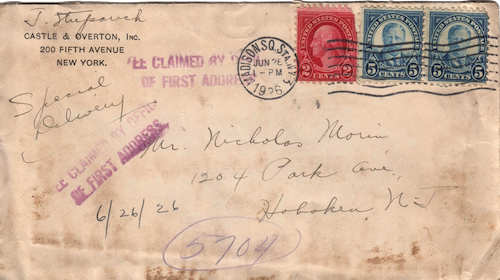 J. Stupovich
CASTLE & OVERTON, Inc.
200 FIFTH AVENUE
NEW YORK.
Special
Delivery
EE CLAIMED BY OFFI
OF FIRST ADDRESS
MADISON SQ. STA. N.Y. 3
JUN 26
1 - PM
1926
UNITED STATES POSTAGE
2 CENTS 2
UNITED STATES POSTAGE
5 CENTS 5
UNITED STATES POSTAGE
5 CENTS 5
EE CLAIMED BY OFFIC
OF FIRST ADDRESS.
Mr. Nicholas Morin
1204 Park Ave,
Hoboken N.J.
6/26/26
5704